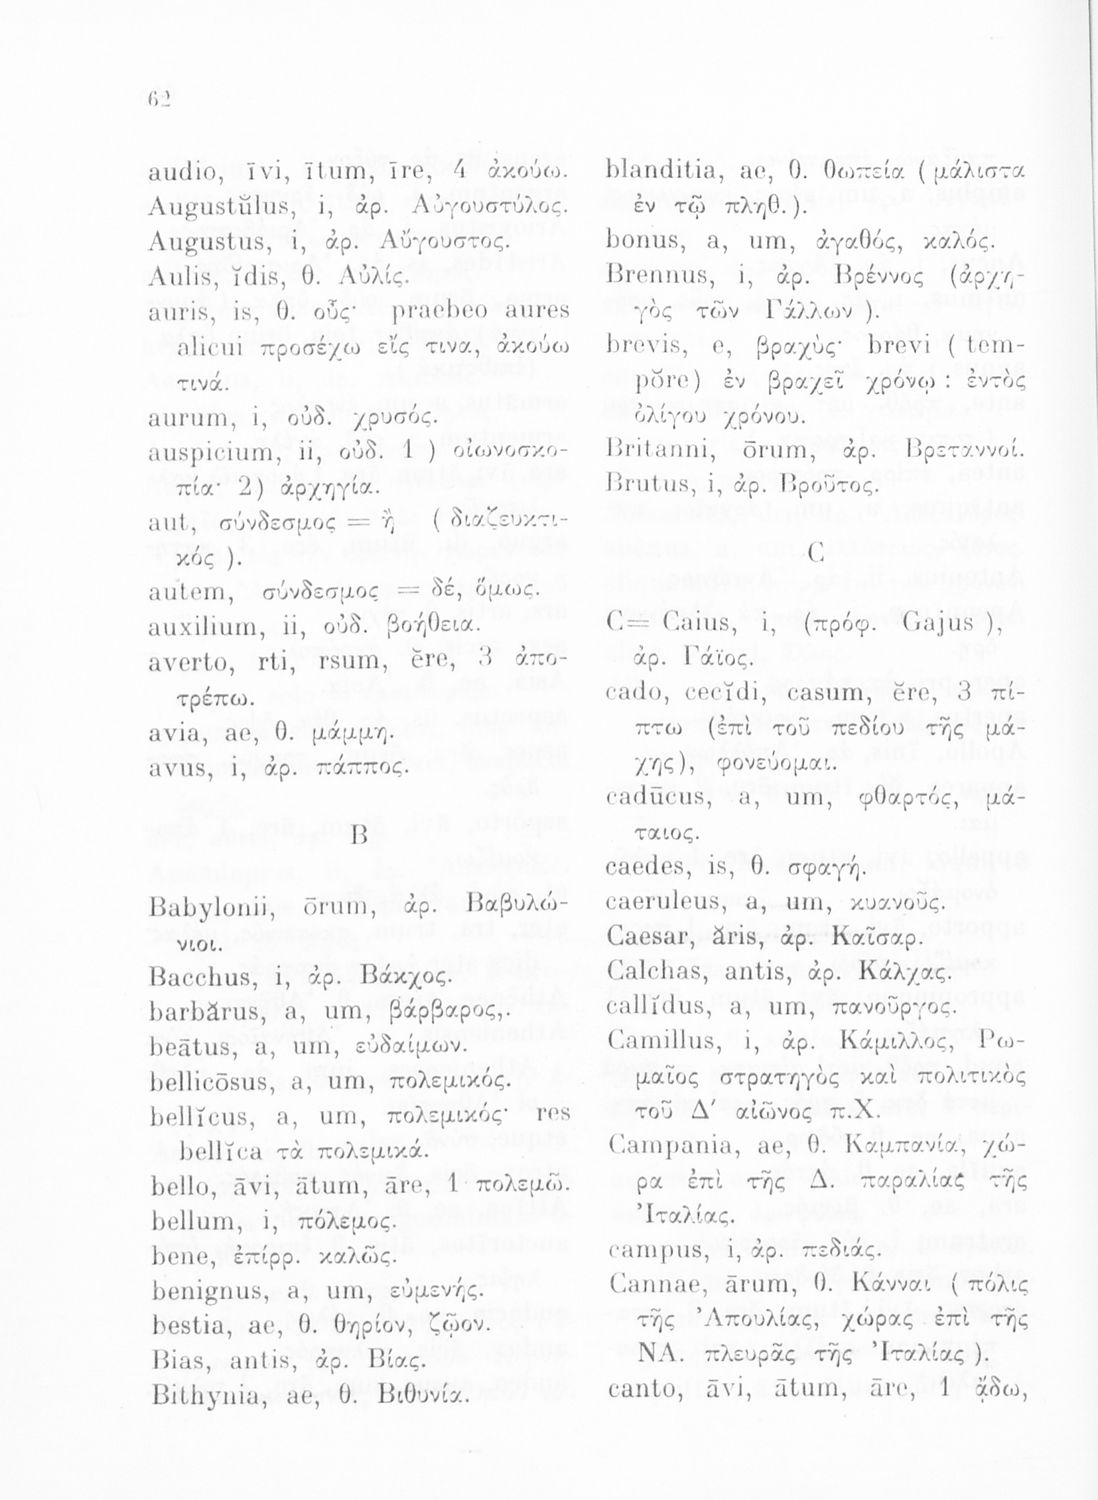 62
audio, īvi, ītum, īre, 4 ἀκούω.
Augustŭlus, i, ἀρ. Αὐγουστύλος.
Augustus, i, ἀρ. Αὔγουστος.
Aulis, ĭdis, θ. Αὐλίς.
auris, is, θ. οὖς· praebeo aures
alicui προσέχω εἴς τινα, ἀκούω
τινά.
aurum, i, οὐδ. χρυσός.
auspicium, ii, οὐδ. 1 ) οἰωνοσκο-
πία· 2) ἀρχηγία.
aut, σύνδεσμος = ἢ ( διαζευκτι-
κός ).
autem, σύνδεσμος = δέ, ὅμως.
auxilium, ii, οὐδ. βοήθεια.
averto, rti, rsum, ĕre, 3 ἀπο-
τρέπω.
avia, ae, θ. μάμμη.
avus, i, ἀρ. πάππος.
B
Babylonii, ōrum, ἀρ. Βαβυλώ-
νιοι.
Bacchus, i, ἀρ. Βάκχος.
barbărus, a, um, βάρβαρος,.
beātus, a, um, εὐδαίμων.
bellicōsus, a, um, πολεμικός.
bellĭcus, a, um, πολεμικός· res
bellĭca τὰ πολεμικά.
bello, āvi, ātum, āre, 1 πολεμῶ.
bellum, i, πόλεμος.
bene, ἐπίρρ. καλῶς.
benignus, a, um, εὐμενής.
bestia, ae, θ. θηρίον, ζῷον.
Bias, antis, ἀρ. Βίας.
Bithynia, ae, θ. Βιθυνία.
blanditia, ae, θ. θωπεία ( μάλιστα
ἐν τῷ πληθ. ).
bonus, a, um, ἀγαθός, καλός.
Brennus, i, ἀρ. Βρέννος (ἀρχη-
γὸς τῶν Γάλλων ).
brevis, e, βραχὺς· brevi ( tem-
pŏre) ἐν βραχεῖ χρόνω : ἐντὸς
ὀλίγου χρόνου.
Britanni, ōrum, ἀρ. Βρεταννοί.
Brutus, i, ἀρ. Βροῦτος.
C
C= Caius, i, (πρόφ. Gajus ),
ἀρ. Γάϊος.
cado, cecĭdi, casum, ĕre, 3 πί-
πτω (ἐπὶ τοῦ πεδίου τῆς μά-
χης), φονεύομαι.
cadūcus, a, um, φθαρτός, μά-
ταιος.
caedes, is, θ. σφαγή.
caeruleus, a, um, κυανοῦς.
Caesar, ăris, ἀρ. Καῖσαρ.
Calchas, antis, ἀρ. Κάλχας.
callĭdus, a, um, πανοῦργος.
Camillus, i, ἀρ. Κάμιλλος, Ρω-
μαῖος στρατηγὸς καὶ πολιτικὸς
τοῦ Δ' αἰῶνος π.Χ.
Campania, ae, θ. Καμπανία, χώ-
ρα ἐπὶ τῆς Δ. παραλίας τῆς
Ἰταλίας.
campus, i, ἀρ. πεδιάς.
Cannae, ārum, θ. Κάνναι ( πόλις
τῆς Ἀπουλίας, χώρας ἐπὶ τῆς
ΝΑ. πλευρᾶς τῆς Ἰταλίας ).
canto, āvi, ātum, āre, 1 ᾄδω,